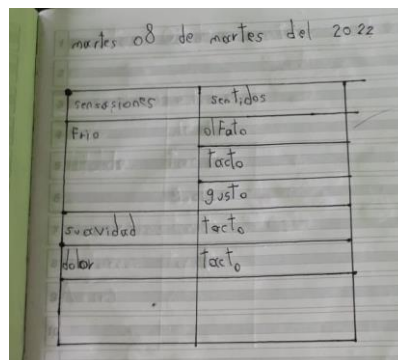 martes 08 de martes del 2022
sensasiones sentidos
Frio olfato
tacto
gusto
suavidad tacto
dolor tacto